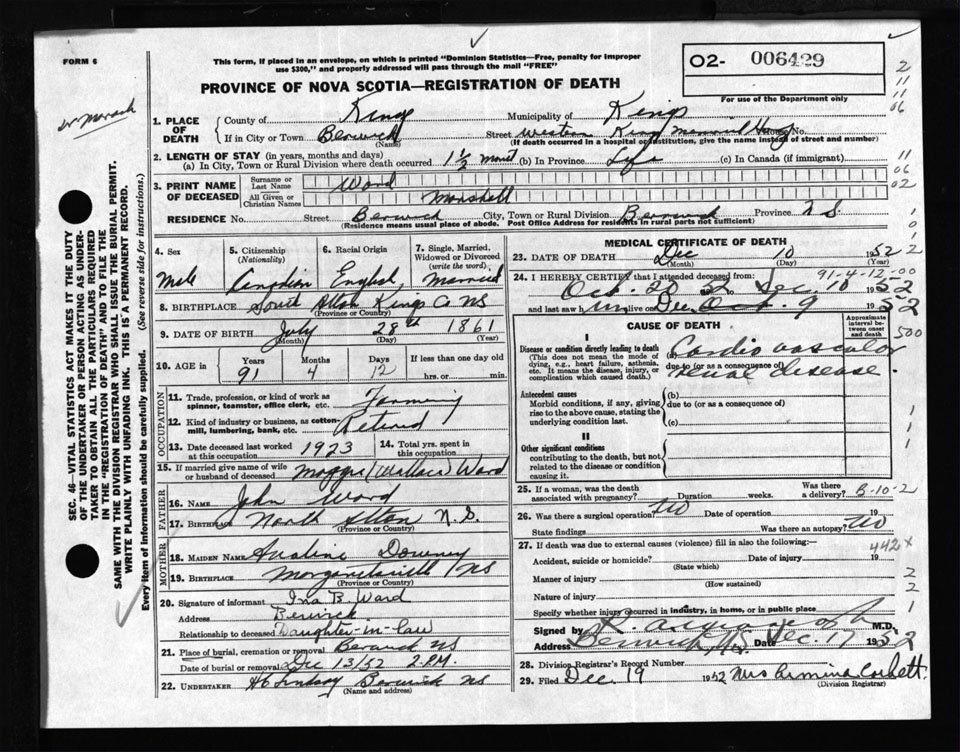 FORM 6
This form, if placed in an envelope, on which is printed "Dominion Statistics—Free, penalty for improper
use $300," and properly addressed will pass through the mail "FREE"
O2- 006429
For use of the Department only
PROVINCE OF NOVA SCOTIA—REGISTRATION OF DEATH
1. PLACE OF DEATH
County of Kings Municipality of Kings
If in City or Town Berwick (Name) Street Western Kings Memorial Hosp No.
(If death occurred in a hospital or institution, give the name instead of street and number)
2. LENGTH OF STAY (in years, months and days)
(a) In City, Town or Rural Division where death occurred 1½ (b) In Province Life (c) In Canada (if immigrant)
3. PRINT NAME OF DECEASED
Surname or Last Name Ward
All Given or Christian Names Marshall
RESIDENCE No. Street Berwick City, Town or Rural Division Berwick Province N.S.
(Residence means usual place of abode. Post Office Address for residents in rural parts not sufficient)
4. Sex Male
5. Citizenship (Nationality) Canadian
6. Racial Origin English
7. Single, Married, Widowed or Divorced (write the word) Married
8. BIRTHPLACE South Kings Co NS
9. DATE OF BIRTH July (Month) 28th (Day) 1861 (Year)
10. AGE in Years 91 Months 4 Days 12 If less than one day old hrs. or min.
OCCUPATION
11. Trade, profession, or kind of work as spinner, teamster, office clerk, etc. Farming
12. Kind of industry or business, as cotten-mill, lumbering, bank, etc. Retired
13. Date deceased last worked at this occupation 1923 14. Total yrs. spent in this occupation
15. If married give name of wife or husband of deceased Maggie (Wallace) Ward
FATHER
16. NAME John Ward
17. BIRTHPLACE North N.S.
(Province or Country)
MOTHER
18. MAIDEN NAME Downey
19. BIRTHPLACE NS
(Province or Country)
20. Signature of informant Ina B. Ward
Address Berwick
Relationship to deceased Daughter-in-law
21. Place of burial, cremation or removal Berwick NS
Date of burial or removal Dec 13/52 2 P.M.
22. UNDERTAKER Lindsay Berwick NS
(Name and address)
MEDICAL CERTIFICATE OF DEATH
23. DATE OF DEATH Dec (Month) 10 (Day) 1952 (Year)
91-4-12-00
24. I HEREBY CERTIFY that I attended deceased from:
Oct. 20 52 Dec. 10 1952
and last saw him alive on Dec 9 1952
CAUSE OF DEATH
Approximate interval between onset and death
I
Disease or condition directly leading to death
(This does not mean the mode of dying, e.g., heart failure, asthenia, etc. It means the disease, injury, or complication which caused death.)
(a) Cardio vascular renal disease.
due to (or as a consequence of)
Antecedent causes
Morbid conditions, if any, giving rise to the above cause, stating the underlying condition last.
(b)
due to (or as a consequence of)
(c)
II
Other significant conditions
contributing to the death, but not related to the disease or condition causing it.
25. If a woman, was the death associated with pregnancy? Duration weeks. Was there a delivery?
26. Was there a surgical operation? No Date of operation
State findings Was there an autopsy? No
27. If death was due to external causes (violence) fill in also the following:
Accident, suicide or homicide? Date of injury 19
(State which)
Manner of injury
(How sustained)
Nature of injury
Specify whether injury occurred in industry, in home, or in public place
Signed by M.D.
Address Berwick NS Date Dec. 17 1952
28. Division Registrar's Record Number
29. Filed Dec. 19 1952 Mrs Armina Corbett
(Division Registrar)
SEC. 46—VITAL STATISTICS ACT MAKES IT THE DUTY
OF THE UNDERTAKER OR PERSON ACTING AS UNDER-
TAKER TO OBTAIN ALL THE PARTICULARS REQUIRED
IN THE "REGISTRATION OF DEATH" AND TO FILE THE
SAME WITH THE DIVISION REGISTRAR WHO SHALL ISSUE THE BURIAL PERMIT.
WRITE PLAINLY WITH UNFADING INK. THIS IS A PERMANENT RECORD.
Every item of information should be carefully supplied. (See reverse side for instructions.)